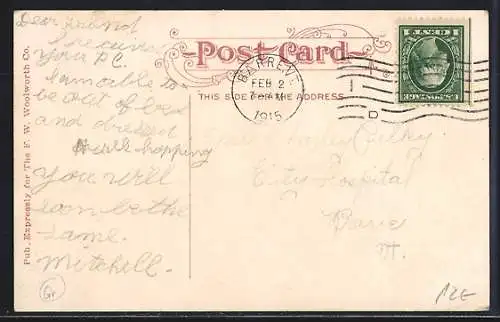 Dear friend
I received
your P.C.
I am able to
be out of bed
and dressed
Am hopping
you will
soon be the
same.
Mitchell.
Pub. Expressly for The F. W. Woolworth Co.
Post Card
THIS SIDE FOR THE ADDRESS
BARRE VT
FEB 2
1915
D
City Hospital
Barre
Vt.
Gr